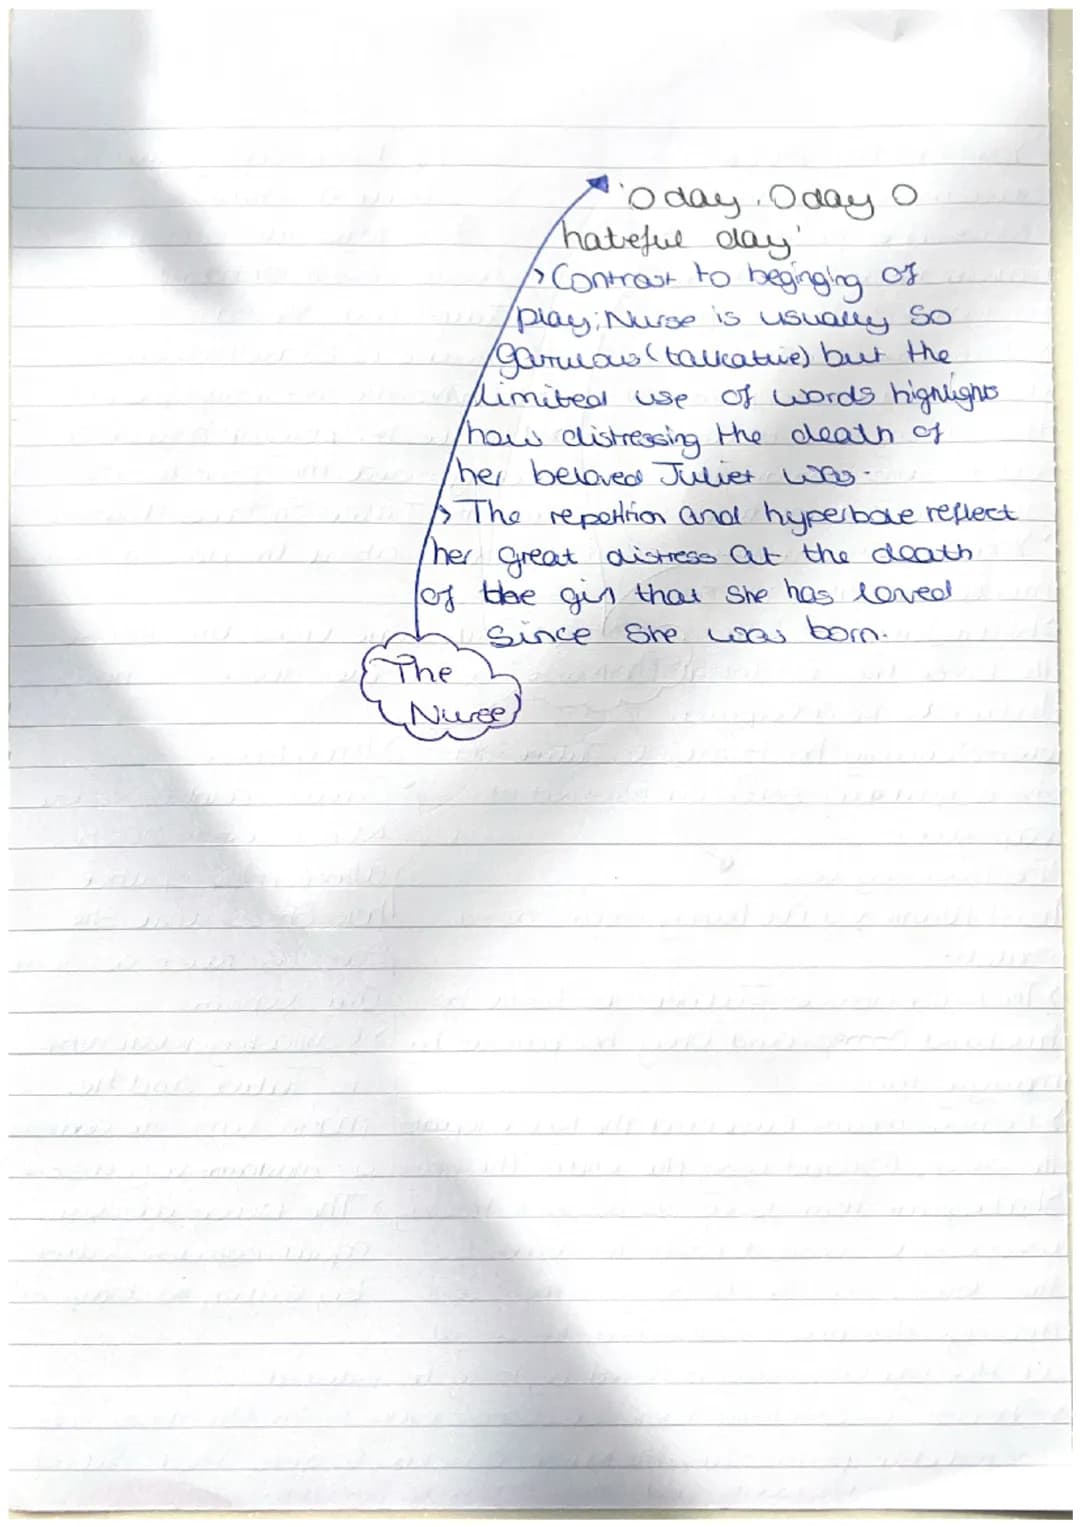 'O day. O day O
hateful day'
> Contrast to beginging of
play; Nurse is usually so
garulous (talkative) but the
limited use of words highlights
how distressing the death of
her beloved Juliet was.
> The repetition and hyperbole reflect
her great distress at the death
of the girl that she has loved
since she was born.
The
Nurse